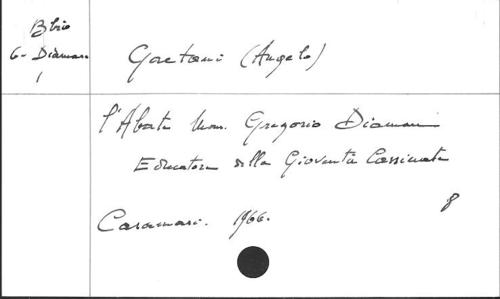 B bio
G - Diamare
1
Gaetani (Angelo)
l'Abate Mons. Gregorio Diamare
Educatore della Gioventù Cassinate
Casamari. 1966.
8